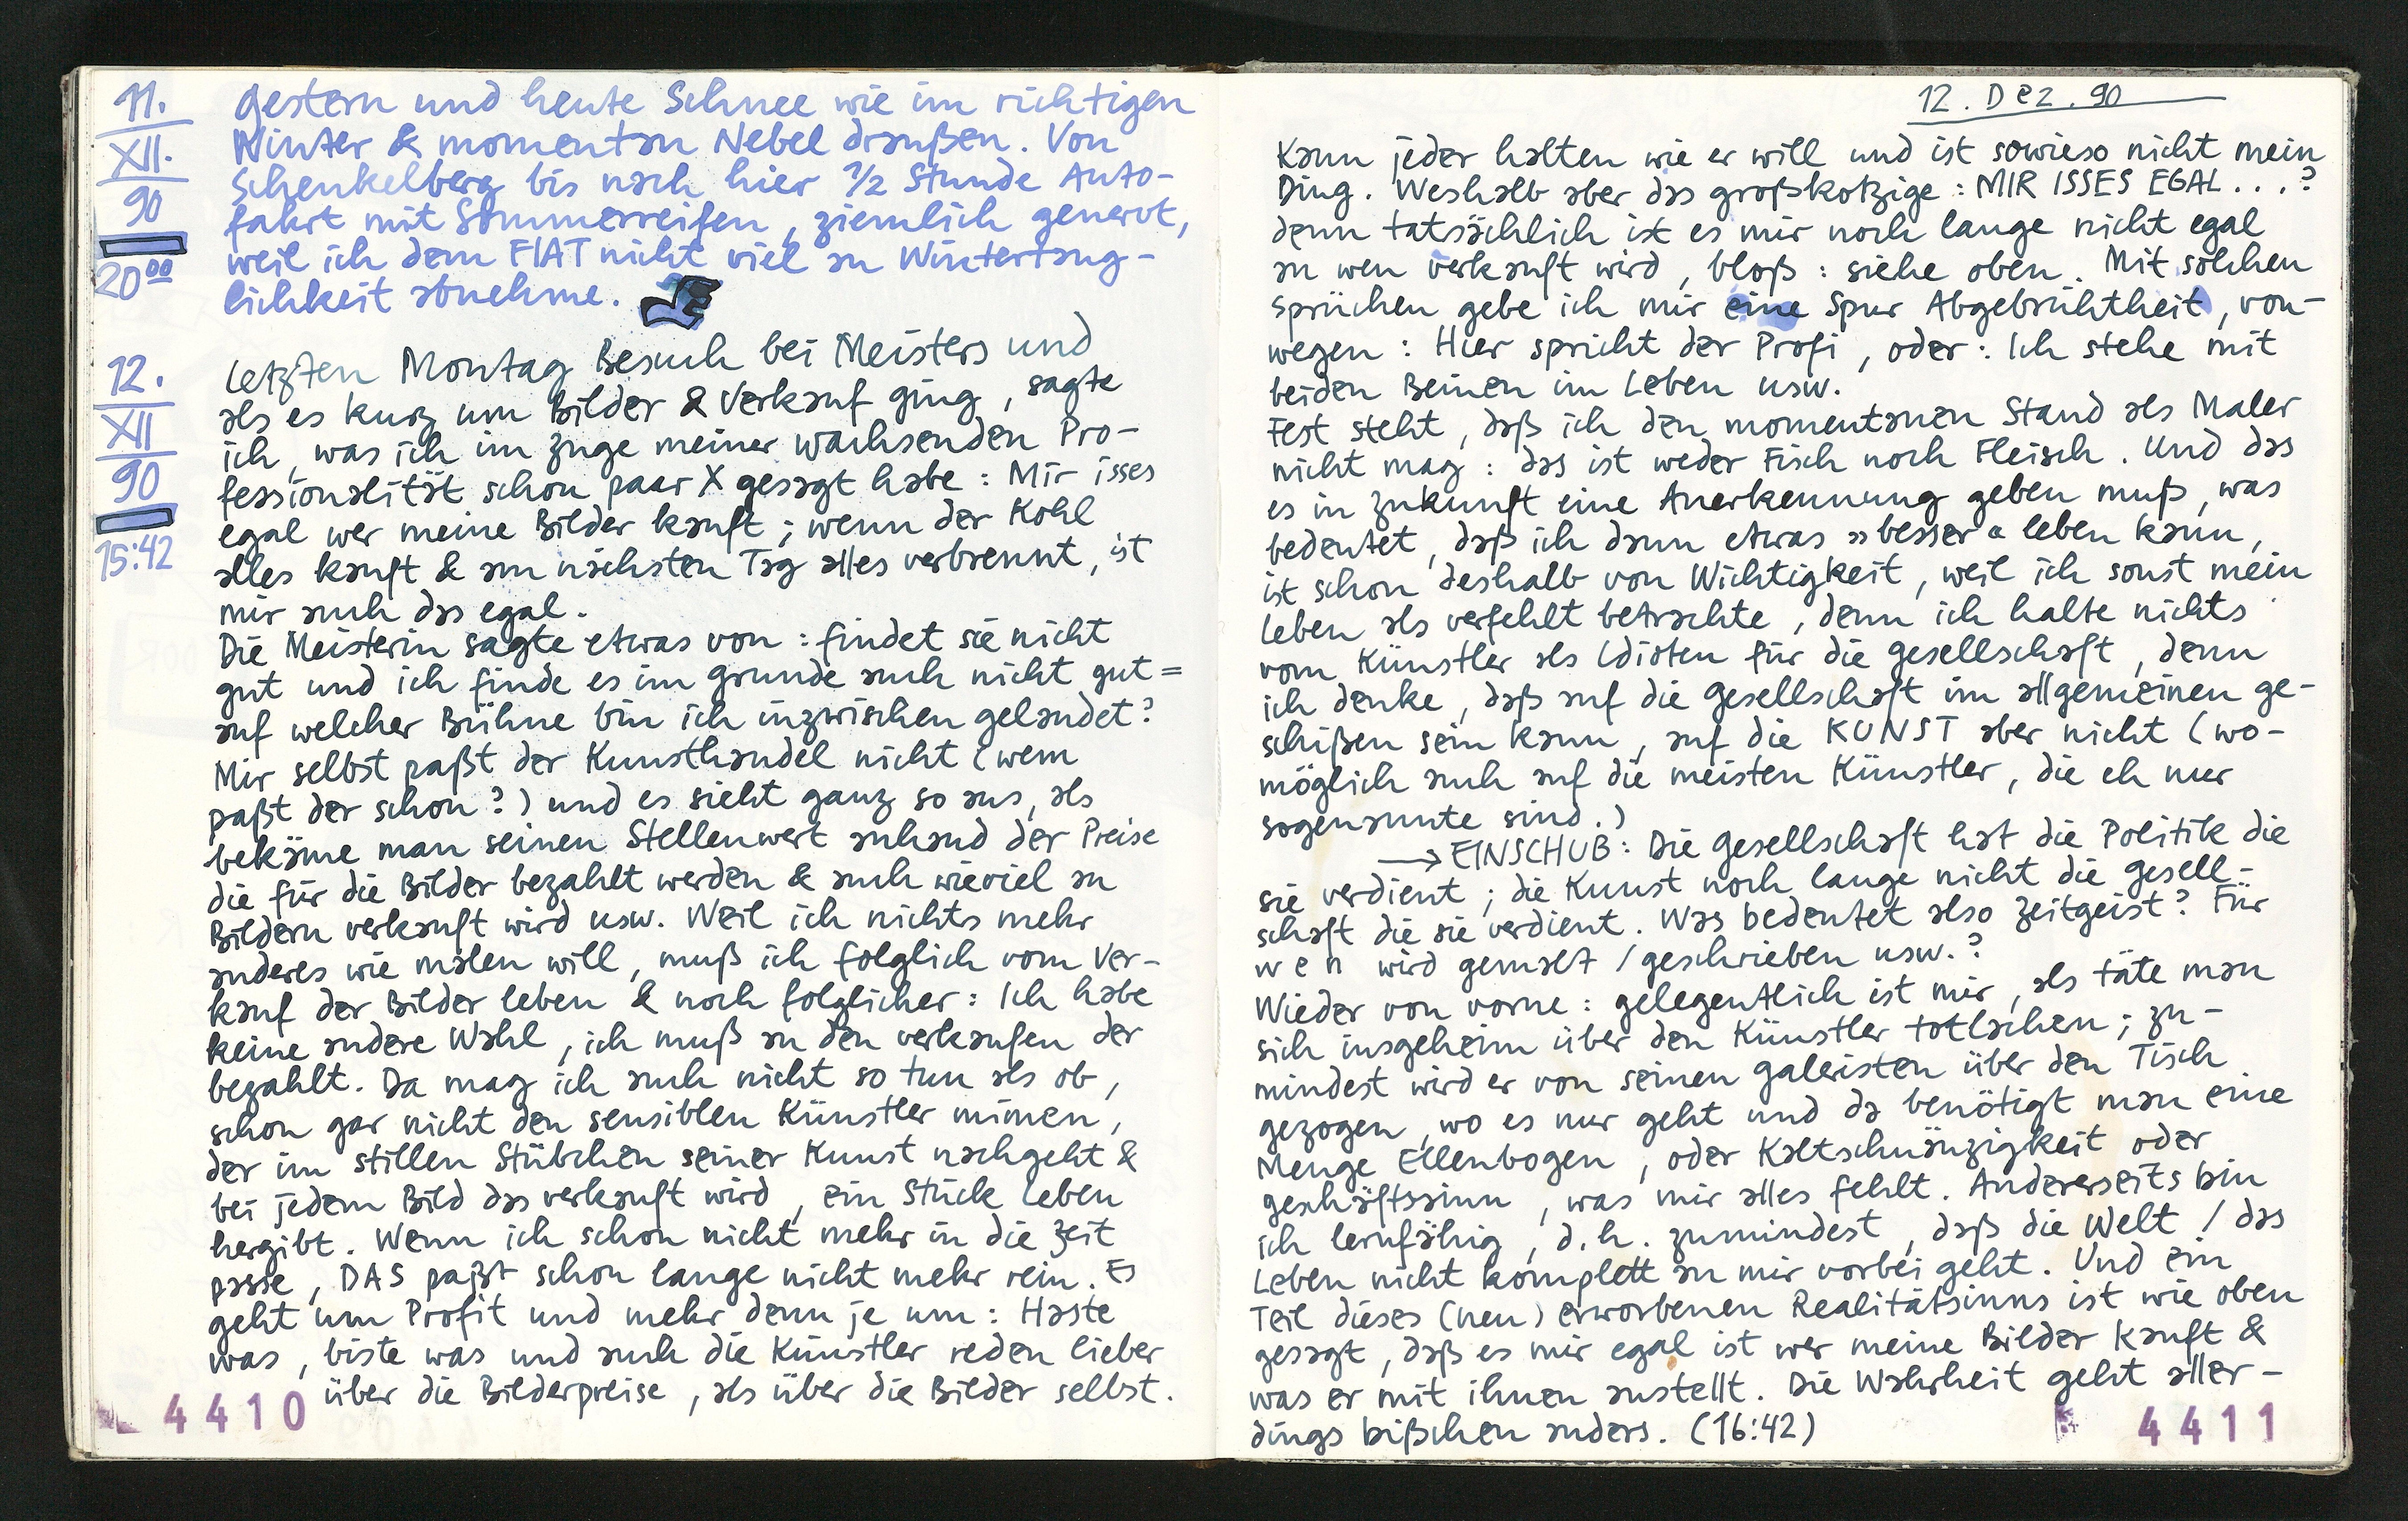 11.
XII.
90
20⁰⁰
Gestern und heute Schnee wie im richtigen
Winter & momentan Nebel draußen. Von
Schenkelberg bis nach hier ½ Stunde Auto-
fahrt mit Sommerreifen, ziemlich genervt,
weil ich dem FIAT nicht viel an Wintertaug-
lichkeit abnehme.
12.
XII
90
15:42
Letzten Montag Besuch bei Meisters und
als es kurz um Bilder & Verkauf ging, sagte
ich, was ich im Zuge meiner wachsenden Pro-
fessionalität schon paar X gesagt habe: Mir isses
egal wer meine Bilder kauft; wenn der Kohl
alles kauft & am nächsten Tag alles verbrennt, ist
mir auch das egal.
Die Meisterin sagte etwas von: findet sie nicht
gut und ich finde es im Grunde auch nicht gut =
auf welcher Bühne bin ich inzwischen gelandet?
Mir selbst paßt der Kunsthandel nicht (wem
paßt der schon?) und es sieht ganz so aus, als
bekäme man seinen Stellenwert anhand der Preise
die für die Bilder bezahlt werden & auch wieviel an
Bildern verkauft wird usw. Weil ich nichts mehr
anderes wie malen will, muß ich folglich vom Ver-
kauf der Bilder leben & noch folglicher: Ich habe
keine andere Wahl, ich muß an den verkaufen der
bezahlt. Da mag ich auch nicht so tun als ob,
schon gar nicht den sensiblen Künstler mimen,
der im stillen Stübchen seiner Kunst nachgeht &
bei jedem Bild das verkauft wird, ein Stück Leben
hergibt. Wenn ich schon nicht mehr in die Zeit
passe, DAS paßt schon lange nicht mehr rein. Es
geht um Profit und mehr denn je um: Haste
was, biste was und auch die Künstler reden lieber
über die Bilderpreise, als über die Bilder selbst.
4410
12. Dez. 90
Kann jeder halten wie er will und ist sowieso nicht mein
Ding. Weshalb aber das großkotzige: MIR ISSES EGAL...?
denn tatsächlich ist es mir noch lange nicht egal
an wen verkauft wird, bloß: siehe oben. Mit solchen
Sprüchen gebe ich mir eine Spur Abgebrühtheit, von-
wegen: Hier spricht der Profi, oder: Ich stehe mit
beiden Beinen im Leben usw.
Fest steht, daß ich den momentanen Stand als Maler
nicht mag: das ist weder Fisch noch Fleisch. Und das
es in Zukunft eine Anerkennung geben muß, was
bedeutet, daß ich dann etwas »besser« leben kann,
ist schon deshalb von Wichtigkeit, weil ich sonst mein
Leben als verfehlt betrachte, denn ich halte nichts
vom Künstler als Idioten für die Gesellschaft, denn
ich denke, daß auf die Gesellschaft im allgemeinen ge-
schißen sein kann, auf die KUNST aber nicht (wo-
möglich auch auf die meisten Künstler, die eh nur
sogenannte sind.)
→ EINSCHUB: Die Gesellschaft hat die Politik die
sie verdient; die Kunst noch lange nicht die Gesell-
schaft die sie verdient. Was bedeutet also Zeitgeist? Für
wen wird gemalt / geschrieben usw.?
Wieder von vorne: gelegentlich ist mir, als täte man
sich insgeheim über den Künstler totlachen; zu-
mindest wird er von seinen Galeristen über den Tisch
gezogen, wo es nur geht und da benötigt man eine
Menge Ellenbogen, oder Kaltschnäuzigkeit oder
Geschäftssinn, was mir alles fehlt. Andererseits bin
ich lernfähig, d.h. zumindest, daß die Welt / das
Leben nicht komplett an mir vorbei geht. Und ein
Teil dieses (neu) erworbenen Realitätsinns ist wie oben
gesagt, daß es mir egal ist wer meine Bilder kauft &
was er mit ihnen anstellt. Die Wahrheit geht aller-
dings bißchen anders. (16:42)
4411